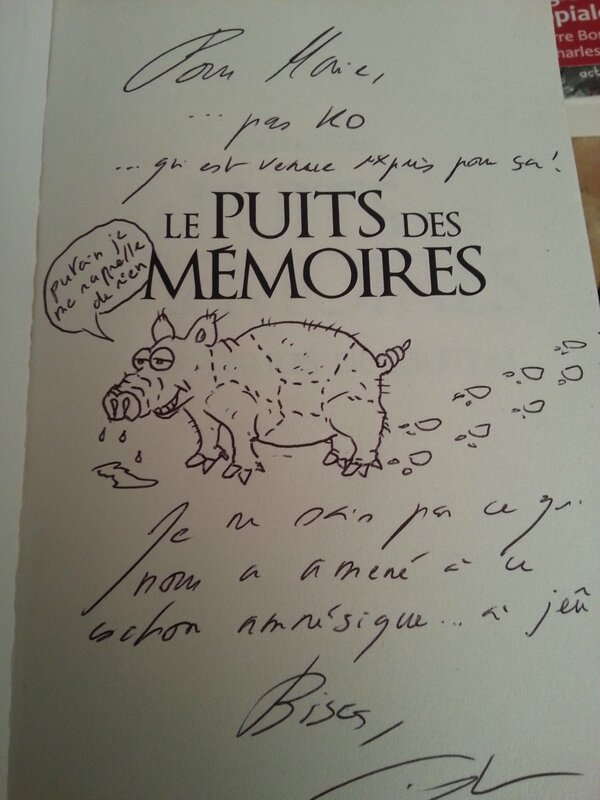 Pour Marie,
... pas KO
... qui est venue exprès pour ça!
LE PUITS DES
MÉMOIRES
putain je
me rappelle
de rien
Je ne sais pas ce qui
nous a amené à ce
cochon amnésique... à jeûn
Bises,
pial
rre Bo
harles
act